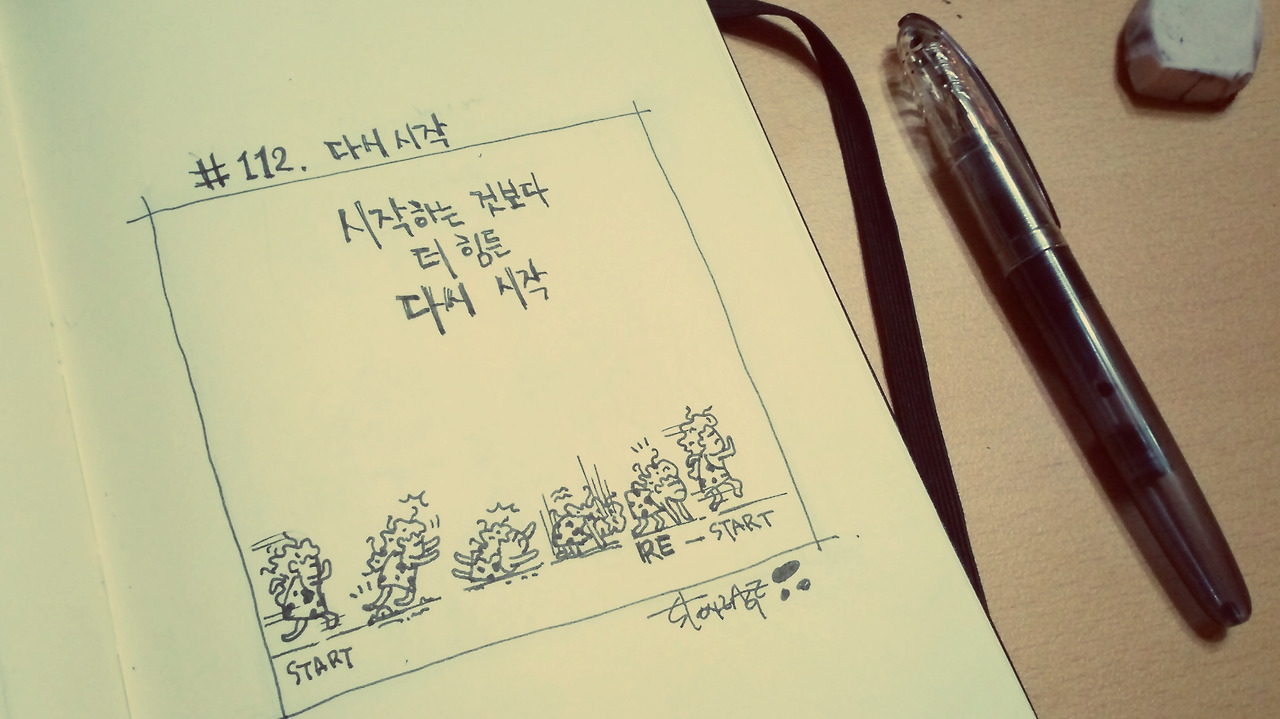 #112. 다시 시작
시작하는 것보다
더 힘든
다시 시작
START
RE-START